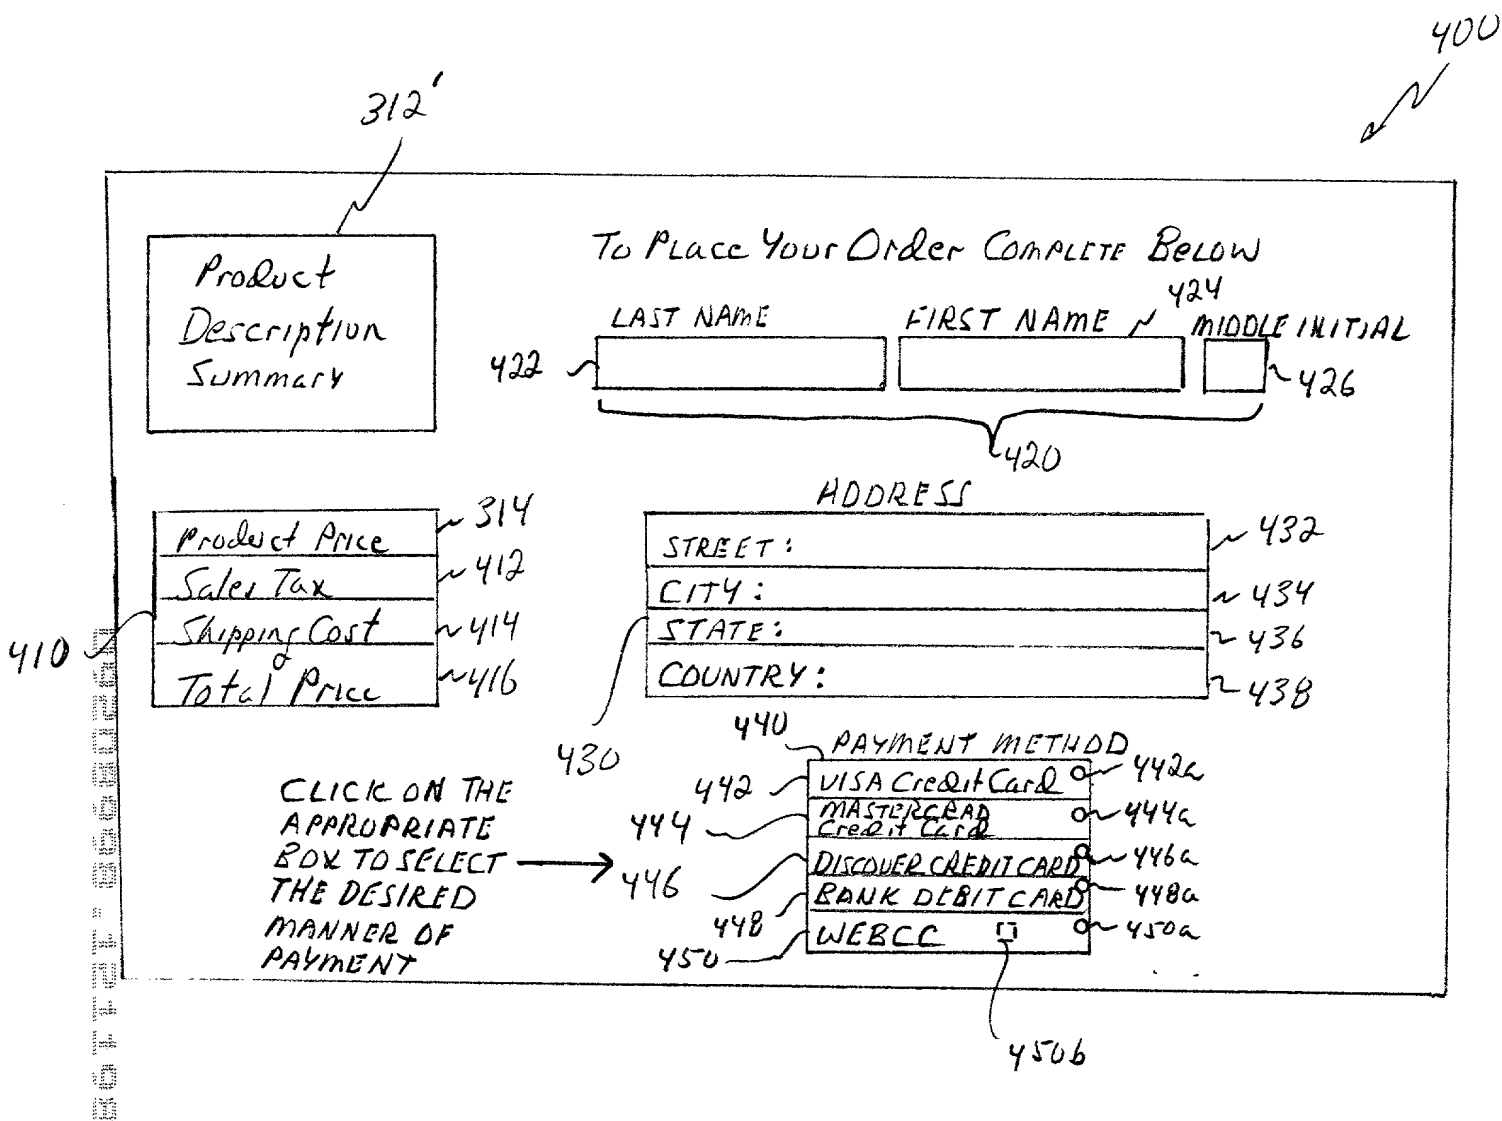 400
312'
Product
Description
Summary
To Place Your Order COMPLETE BELOW
424
LAST NAME
FIRST NAME
MIDDLE INITIAL
422
426
420
ADDRESS
Product Price
314
Sales Tax
412
Shipping Cost
414
Total Price
416
410
STREET:
432
CITY:
434
STATE:
436
COUNTRY:
438
430
440
PAYMENT METHOD
442
VISA Credit Card
442a
444
MASTERCRAD
Credit Card
444a
446
DISCOVER CREDIT CARD
446a
448
BANK DEBIT CARD
448a
450
WEBCC
450a
450b
CLICK ON THE
APPROPRIATE
BOX TO SELECT
THE DESIRED
MANNER OF
PAYMENT